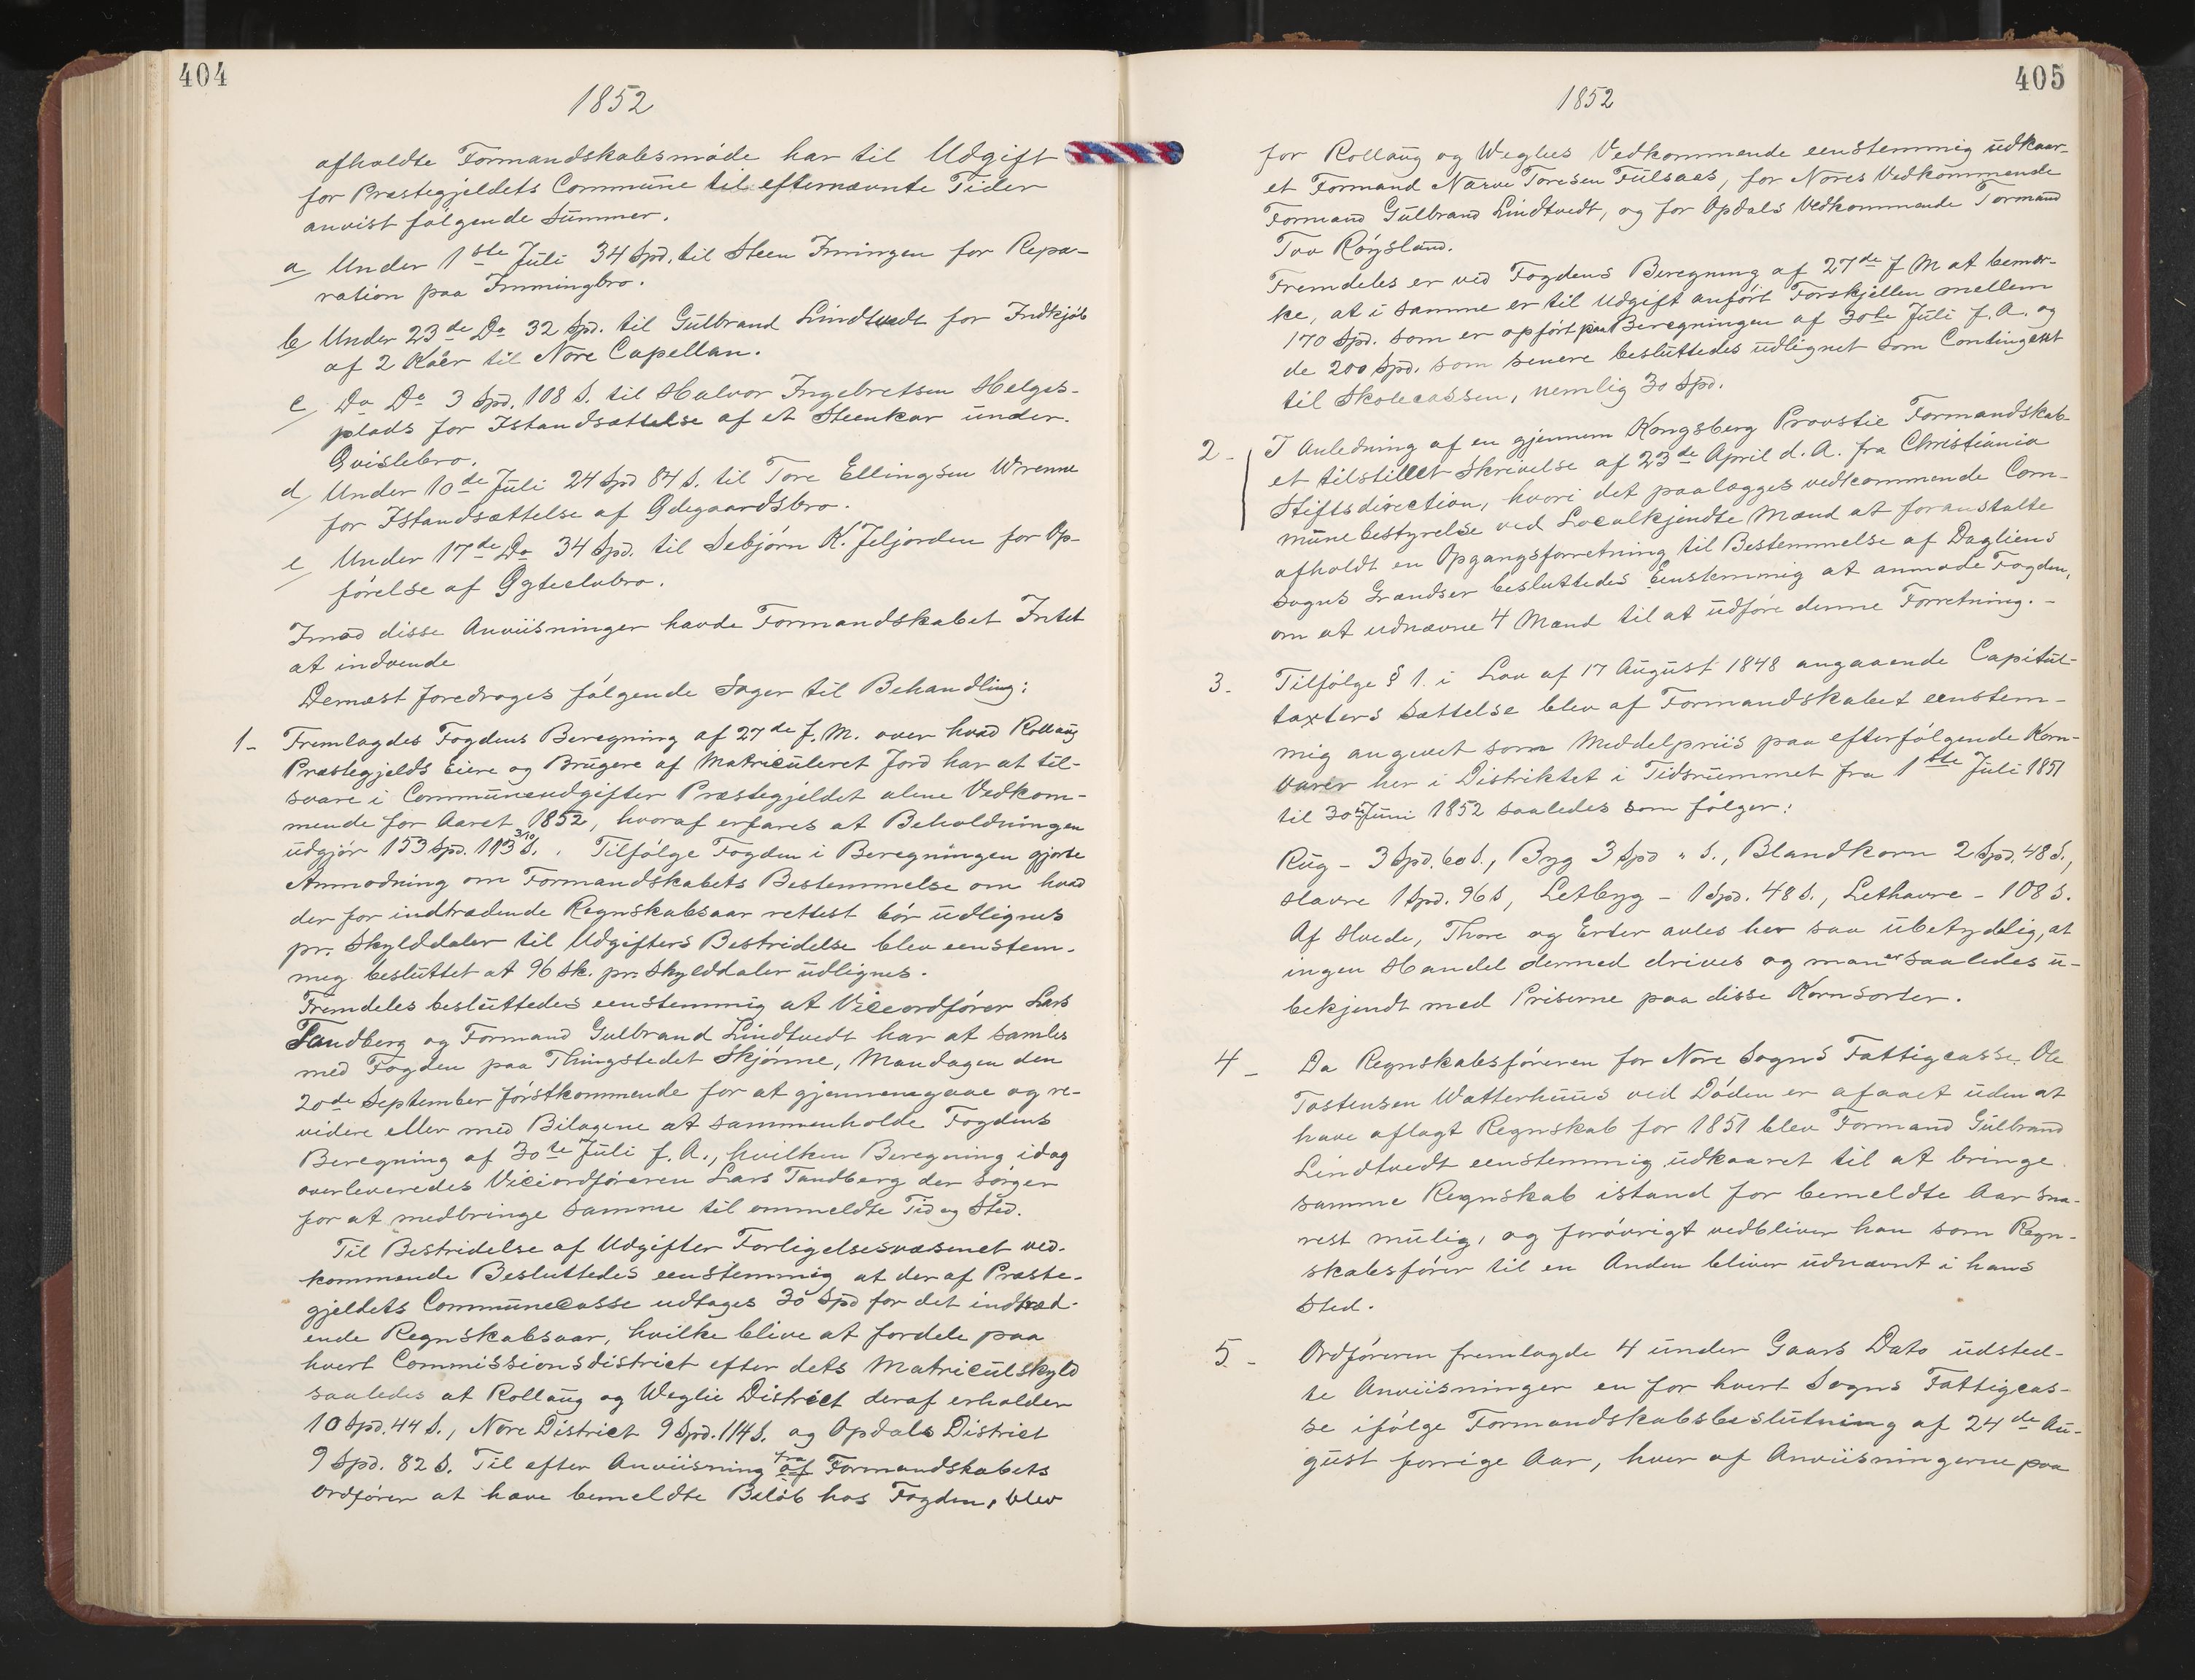 404
1852
afholdte Formandskabsmøde har til Udgift
for Præstegjeldets Commune til efternævnte Tider
anvist følgende Summer.
a/ Under 1ste Juli 34 Spd. til Steen Imingen for Repa-
ration paa Immingbro.
b/ Under 23de Do 32 Spd. til Gulbrand Lindtvedt for Indkjøb
af 2 Køer til Nore Capellan.
c/ Do Do 3 Spd. 108 S. til Halvor Ingebretsen Helges-
plads for Istandsættelse af et Steenkar under
Gvislebro.
d/ Under 10de Juli 24 Spd 84 S. til Tore Ellingsen Wrenne
for Istandsættelse af Ødegaardsbro.
e/ Under 17de Do 34 Spd. til Sebjørn K. Jeljorden for Op-
førelse af Øgteelvbro.
Imod disse Anviisninger havde Formandskabet Intet
at indvende
Dernæst foredroges følgende Sager til Behandling:
1- Fremlagdes Fogdens Beregning af 27de f. M. over hvad Rollaug
Præstegjelds Eiere og Brugere af Matriculeret Jord har at til-
svare i Communeudgifter Præstegjeldet alene Vedkom-
mende for Aaret 1852, hvoraf erfares at Beholdningen
udgjør 153 Spd. 113 3/10 S. Tilfølge Fogden i Beregningen gjorte
Anmodning om Formandskabets Bestemmelse om hvad
der for indtrædende Regnskabsaar rettest bør udlignes
pr. Skylddaler til Udgifters Bestridelse blev eenstem-
mig besluttet at 96 Sk. pr. Skylddaler udlignes.
Fremdeles besluttedes eenstemmig at Viceordfører Lars
Tandberg og Formand Gulbrand Lindtvedt har at samles
med Fogden paa Thingstedet Skjønne, Mandagen den
20de September førstkommende for at gjennemgaae og re-
videre eller med Bilagene at sammenholde Fogdens
Beregning af 30te Juli f. A., hvilken Beregning idag
overleveredes Viceordføreren Lars Tandberg der sørger
for at medbringe samme til ommeldte Tid og Sted.
Til Bestridelse af Udgifter Forligelsesvæsenet ved-
kommende Besluttedes eenstemmig at der af Præste-
gjeldets Communecasse udtages 30 Spd for det indtræd-
ende Regnskabsaar, hvilke blive at fordele paa
hvert Commissionsdistrict efter dets Matriculskyld
saaledes at Rollaug og Weglie District deraf erholder
10 Spd. 44 S., Nore District 9 Spd. 114 S. og Opdals District
9 Spd. 82 S. Til efter Anviisning fra af Formandskabets
Ordfører at hæve bemeldte Beløb hos Fogden, blev
405
1852
for Rollaug og Weglies Vedkommende eenstemmig udkaar-
et Formand Narve Toresen Fulsaas, for Nores Vedkommende
Formand Gulbrand Lindtvedt, og for Opdals Vedkommende Formand
Tov Røysland.
Fremdeles er ved Fogdens Beregning af 27de f M at bemær-
ke, at i samme er til Udgift anført Forskjellen mellem
170 Spd. som er opført paa Beregningen af 30te Juli f. A. og
de 200 Spd. som senere besluttedes udlignet som Contingent
til Skolecassen, nemlig 30 Spd.
2- I Anledning af en gjennem Kongsberg Provstie Formandskab-
et tilstillet Skrivelse af 23de April d. A. fra Christiania
Stiftsdirection, hvori det paalægges vedkommende Com-
munebestyrelse ved Localkjendte Mænd at foranstalte
afholdt en Opgangsforretning til Bestemmelse af Dagliens
Sogns Grændser besluttedes Eenstemmig at anmode Fogden,
om at udnævne 4 Mænd til at udføre denne Forretning. -
3. Tilfølge § 1. i Lov af 17 August 1848 angaaende Capitul-
taxters Sættelse blev af Formandskabet eenstem-
mig angivet som Middelpriis paa efterfølgende Korn-
varer her i Distriktet i Tidsrummet fra 1ste Juli 1851
til 30te Juni 1852 saaledes som følger:
Rug - 3 Spd. 60 S., Byg 3 Spd " S., Blandkorn 2 Spd. 48 S.,
Havre 1 Spd. 96 S, Letbyg - 1 Spd. 48 S., Lethavre - 108 S.
Af Hvede, Thore og Erter avles her saa ubetydelig, at
ingen Handel dermed drives og man er saaledes u-
bekjendt med Priserne paa disse Kornsorter.
4- Da Regnskabsføreren for Nore Sogns Fattigcasse Ole
Tostensen Wætterhuus ved Døden er afgaaet uden at
have aflagt Regnskab for 1851 blev Formand Gulbrand
Lindtvedt eenstemmig udkaaret til at bringe
samme Regnskab istand for bemeldte Aar sna-
rest mulig, og forøvrigt vedbliver han som Regn-
skabsfører til en Anden bliver udnævnt i hans
Sted.
5- Ordføreren fremlagde 4 under Gaars Dato udsted-
te Anviisninger en for hvert Sogns Fattigcas-
se ifølge Formandskabsbeslutning af 24de Au-
gust forrige Aar, hver af Anviisningerne paa